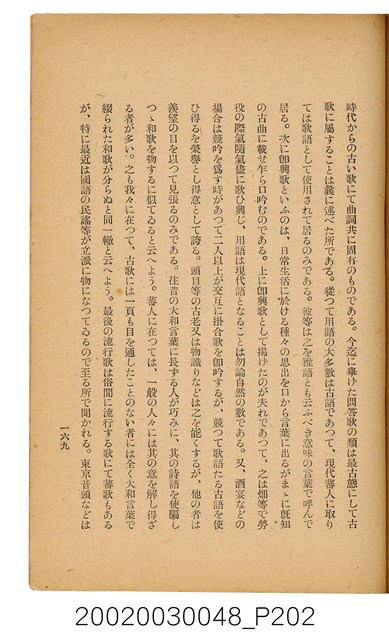 時代からの古い歌にて曲調共に固有のものである。今迄に擧げた問答歌の類は最古態にして古
歌に屬することは曩に述べた所である。從つて用語の大多數は古語であつて、現代蕃人に取り
ては歌語として使用されて居るのみである。彼等は之を雅語とも云ふべき意味の言葉で呼んで
居る。次に卽興歌といふのは、日常生活に於ける種々の思出を口から言葉に出るがまゝに旣知
の古曲に載せ乍ら口吟むのである。上に卽興歌として揭げたのが夫れであつて、之は畑等で勞
役の際氣隨氣儘に歌ひ興じ、用語は現代語となることは勿論自然の數である。又、酒宴などの
場合は競吟を爲す時があつて二人以上が交互に掛合歌を卽吟するが、競つて歌語たる古語を使
ひ得るを榮譽とし得意として誇る。頭目等の古老又は物識りなどは之を能くするが、他の者は
羨望の目を以つて見張るのみである。往昔の大和言葉に長ずる人が巧みに、其の詩語を使驅し
つゝ和歌を物するに似てゐると云へよう。蕃人に在つては、一般の人々には其の意を解し得ざ
る者が多い。之も我々に在つて、古歌には一頁も目を通したことのない者には全く大和言葉で
綴られた和歌が分らぬと同一轍と云へよう。最後の流行歌は俗間に流行する歌にて蕃歌もある
が、特に最近は國語の民謠等が立派に物になつてゐるので至る所で聞かれる。東京音頭などは
一六九
20020030048_P202